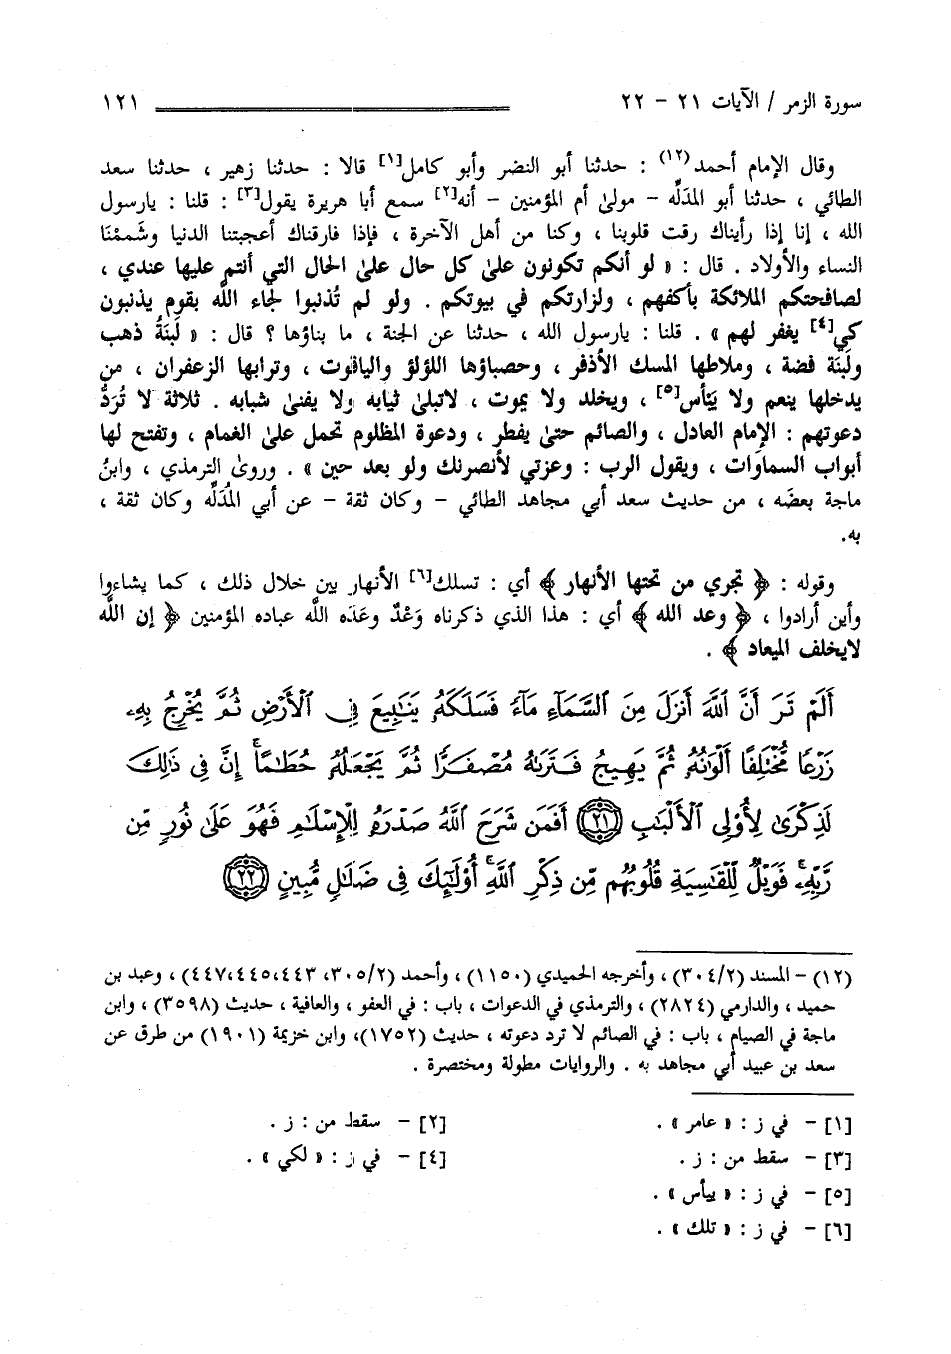 سورة الزمر / الآيات ٢١ - ٢٢ ١٢١
وقال الإمام أحمد(١٢) : حدثنا أبو النضر وأبو كامل[١] قالا : حدثنا زهير ، حدثنا سعد
الطائي ، حدثنا أبو المدَلِّه - مولىٰ أم المؤمنين - أنه[٢] سمع أبا هريرة يقول[٣] : قلنا : يارسول
الله ، إنا إذا رأيناك رقت قلوبنا ، وكنا من أهل الآخرة ، فإذا فارقناك أعجبتنا الدنيا وشَممْنَا
النساء والأولاد . قال : « لو أنكم تكونون علىٰ كل حال علىٰ الحال التي أنتم عليها عندي ،
لصافحتكم الملائكة بأكفهم ، ولزارتكم في بيوتكم . ولو لم تُذنبوا لجاء اللَّه بقوم يذنبون
كي[٤] يغفر لهم » . قلنا : يارسول الله ، حدثنا عن الجنة ، ما بناؤها ؟ قال : « لَبِنَةُ ذهب
ولَبِنَة فضة ، وملاطها المسك الأذفر ، وحصباؤها اللؤلؤ والياقوت ، وترابها الزعفران ، من
يدخلها ينعم ولا يَبْأس[٥] ، ويخلد ولا يموت ، لاتبلىٰ ثيابه ولا يفنىٰ شبابه . ثلاثة لا تُرَدُّ
دعوتهم : الإمام العادل ، والصائم حتىٰ يفطر ، ودعوة المظلوم تحمل علىٰ الغمام ، وتفتح لها
أبواب السماوات ، ويقول الرب : وعزتي لأنصرنك ولو بعد حين » . وروىٰ الترمذي ، وابنُ
ماجة بعضَه ، من حديث سعد أبي مجاهد الطائي - وكان ثقة - عن أبي المُدَلِّه وكان ثقة ،
به.
وقوله : ﴿ تجري من تحتها الأنهار ﴾ أي : تسلك[٦] الأنهار بين خلال ذلك ، كما يشاءوا
وأين أرادوا ، ﴿ وعد الله ﴾ أي : هذا الذي ذكرناه وَعْدٌ وعَدَه اللَّه عباده المؤمنين ﴿ إن اللَّه
لايخلف الميعاد ﴾ .
أَلَمْ تَرَ أَنَّ ٱللَّهَ أَنزَلَ مِنَ ٱلسَّمَآءِ مَآءً فَسَلَكَهُۥ يَنَٰبِيعَ فِى ٱلْأَرْضِ ثُمَّ يُخْرِجُ بِهِۦ
زَرْعًا مُّخْتَلِفًا أَلْوَٰنُهُۥ ثُمَّ يَهِيجُ فَتَرَىٰهُ مُصْفَرًّا ثُمَّ يَجْعَلُهُۥ حُطَٰمًا ۚ إِنَّ فِى ذَٰلِكَ
لَذِكْرَىٰ لِأُو۟لِى ٱلْأَلْبَٰبِ (٢١) أَفَمَن شَرَحَ ٱللَّهُ صَدْرَهُۥ لِلْإِسْلَٰمِ فَهُوَ عَلَىٰ نُورٍ مِّن
رَّبِّهِۦ ۚ فَوَيْلٌ لِّلْقَٰسِيَةِ قُلُوبُهُم مِّن ذِكْرِ ٱللَّهِ ۚ أُو۟لَٰٓئِكَ فِى ضَلَٰلٍ مُّبِينٍ (٢٢)
(١٢) - المسند (٣٠٤/٢) ، وأخرجه الحميدي (١١٥٠) ، وأحمد (٣٠٥/٢، ٤٤٧،٤٤٥،٤٤٣) ، وعبد بن
حميد ، والدارمي (٢٨٢٤) ، والترمذي في الدعوات ، باب : في العفو ، والعافية ، حديث (٣٥٩٨) ، وابن
ماجة في الصيام ، باب : في الصائم لا ترد دعوته ، حديث (١٧٥٢)، وابن خزيمة (١٩٠١) من طرق عن
سعد بن عبيد أبي مجاهد به . والروايات مطولة ومختصرة .
[١] - في ز : « عامر » . [٢] - سقط من : ز .
[٣] - سقط من : ز . [٤] - في ز : « لكي » .
[٥] - في ز : « ييأس » .
[٦] - في ز : « تلك » .